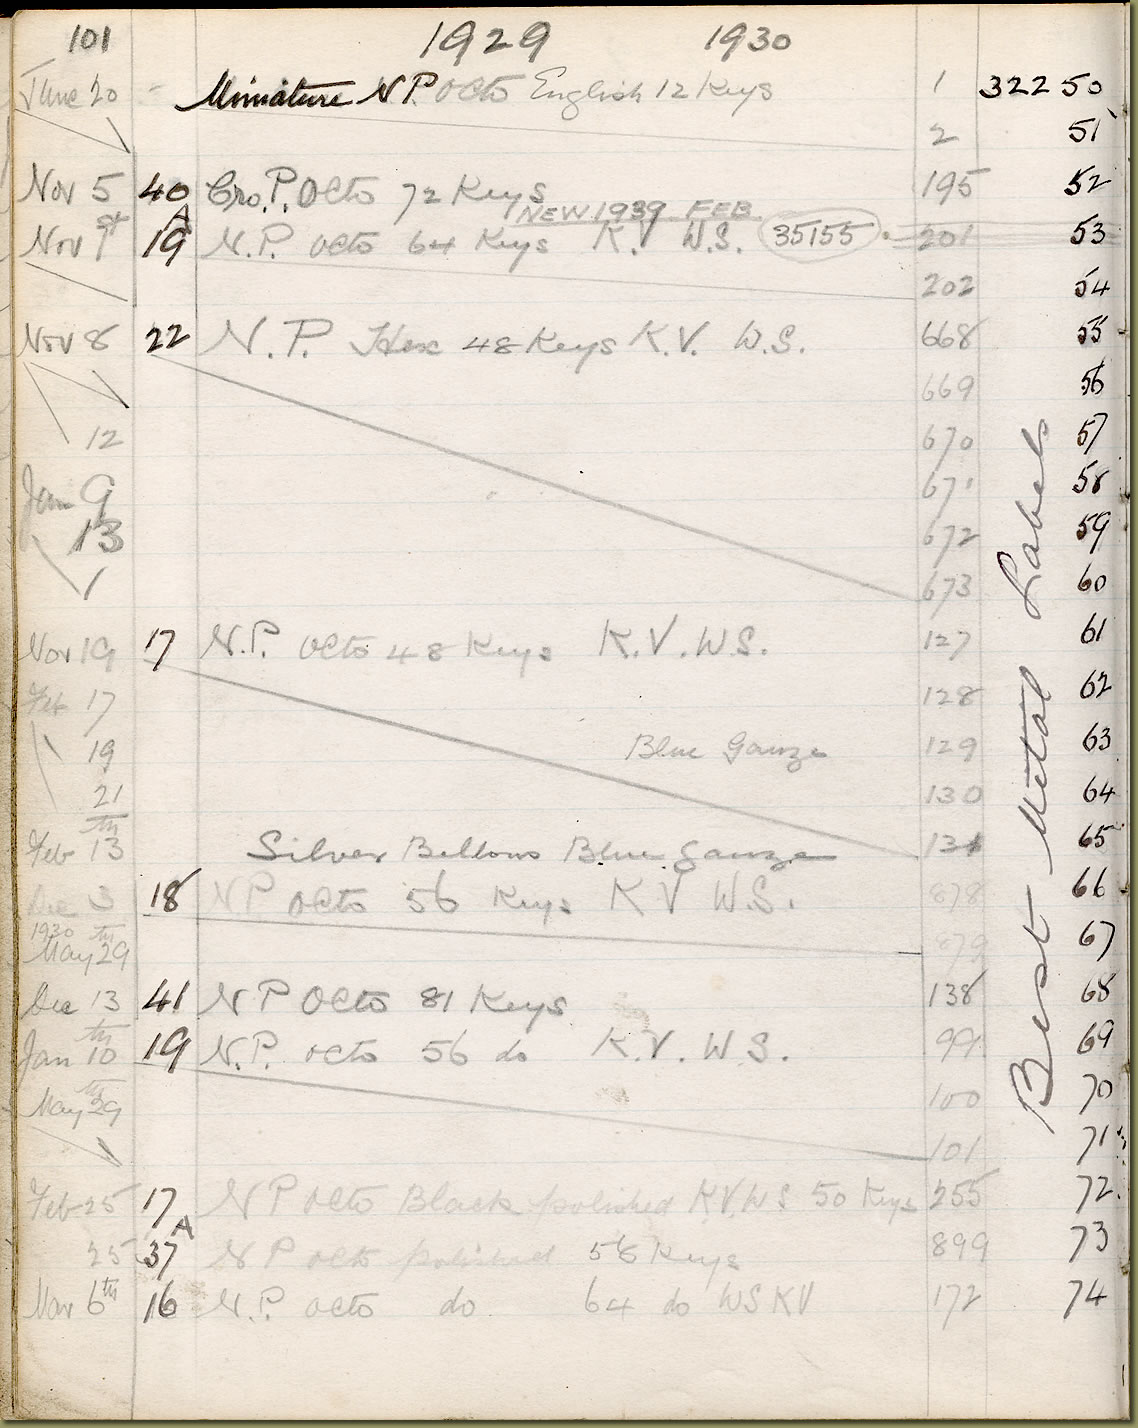 101 1929 1930
June 20 Miniature N.P. Octo English 12 Keys 1 32250
2 51
Nov 5 40 Cro. P. Octo 72 Keys 195 52
NEW 1939 FEB
Nov 1st 19A N.P. octo 64 Keys K.V W.S. 35155 201 53
202 54
Nov 8 22 N.P. Hex 48 Keys K.V. W.S. 668 55
669 56
12 670 57
Jan 9 671 58
13 672 59
1 673 60
Nov 19 17 N.P. octo 48 Keys K.V. W.S. 127 61
Feb 17 128 62
19 Blue Gauze 129 63
21 130 64
Feb 13th Silver Bellows Blue gauze 131 65
Dec 3 18 NP octo 56 Keys K V W.S. 878 66
1930 May 29th 879 67
Dec 13 41 N P Octo 81 Keys 138 68
Jan 10th 19 N.P. octo 56 do K.V. W S. 99 69
May 29th 100 70
101 71
Feb 25 17 N P octo Black polished K.V. W.S 50 Keys 255 72
25 37A N P octo polished 56 Keys 899 73
Mar 6th 16 N.P. octo do. 64 do WS KV 172 74
Best Metal Labels